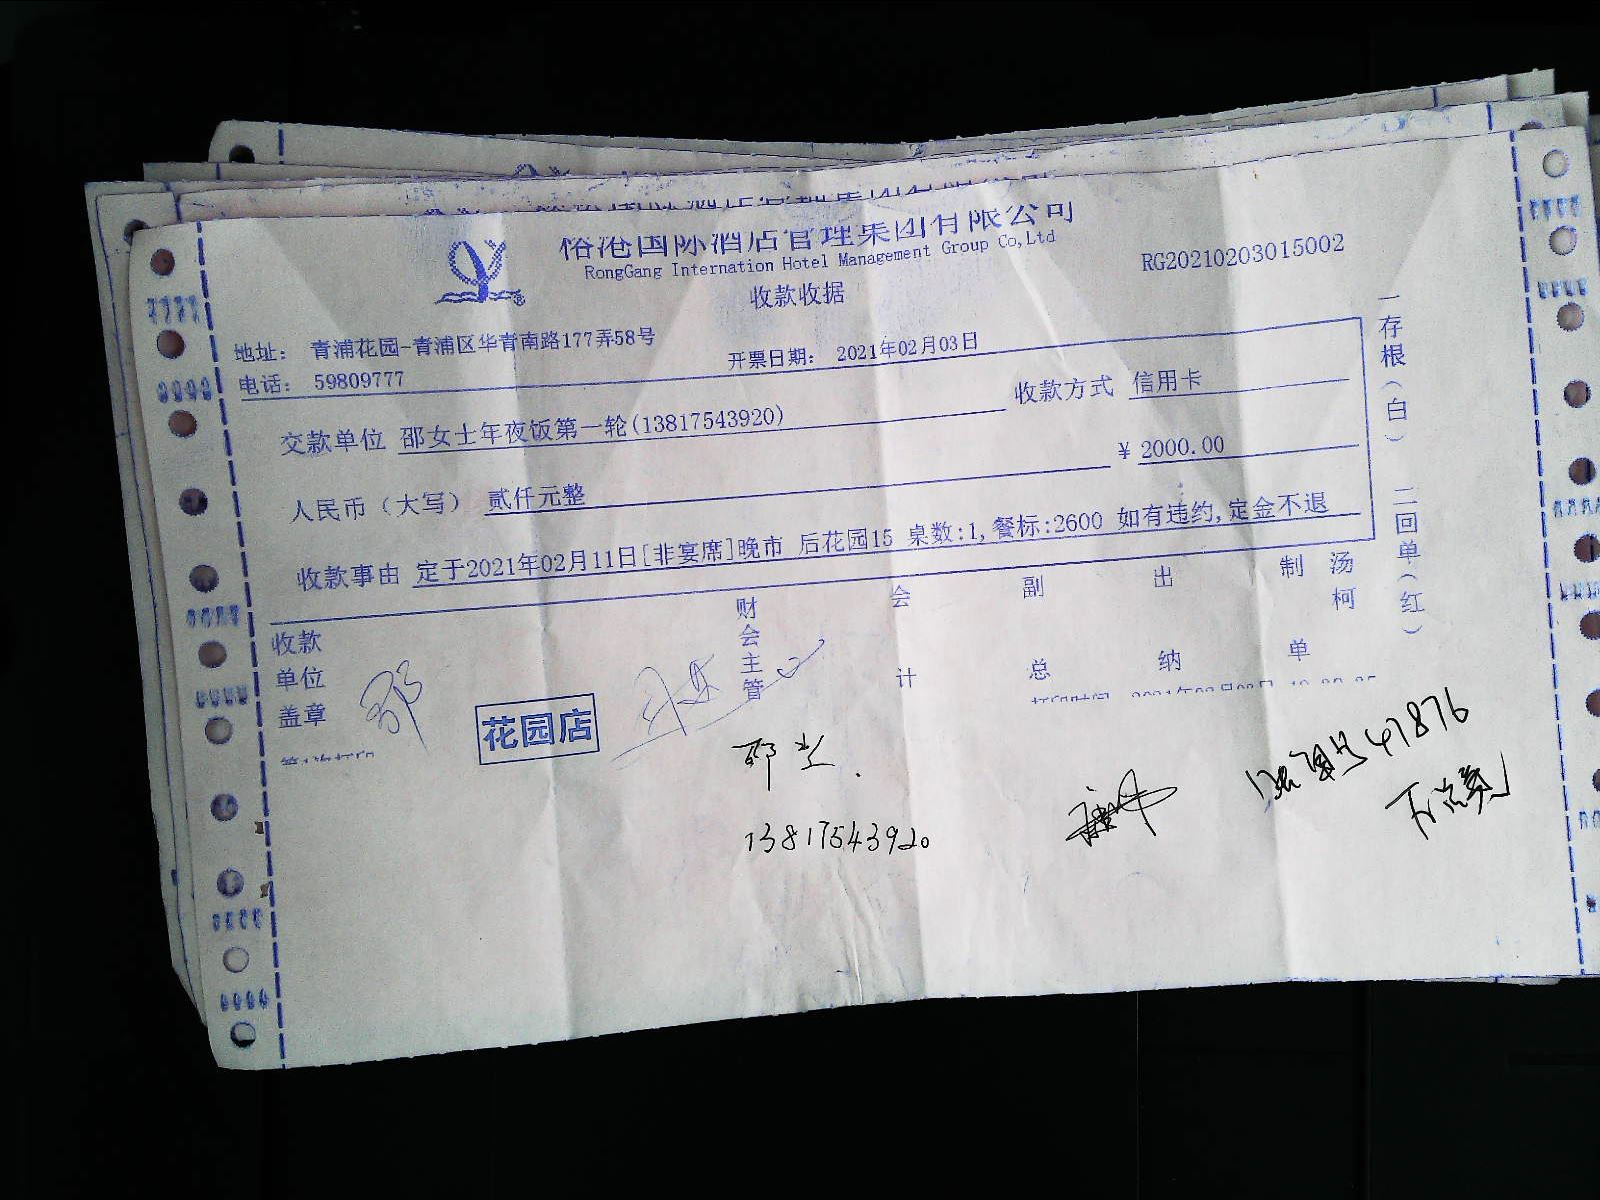 国际酒店管理集团有限公司
RongGang Internation Hotel Management Group Co,Ltd
RG20210203015002
收款收据
地址： 青浦花园-青浦区华青南路177弄58号
电话： 59809777
开票日期： 2021年02月03日
交款单位 邵女士年夜饭第一轮(13817543920)
收款方式 信用卡
人民币（大写） 贰仟元整
￥ 2000.00
收款事由 定于2021年02月11日[非宴席]晚市 后花园15 桌数:1,餐标:2600 如有违约,定金不退
一存根（白） 二回单（红）
收款单位盖章
财会主管
会计
副总
出纳
制单
汤柯
花园店
13817543920
47876